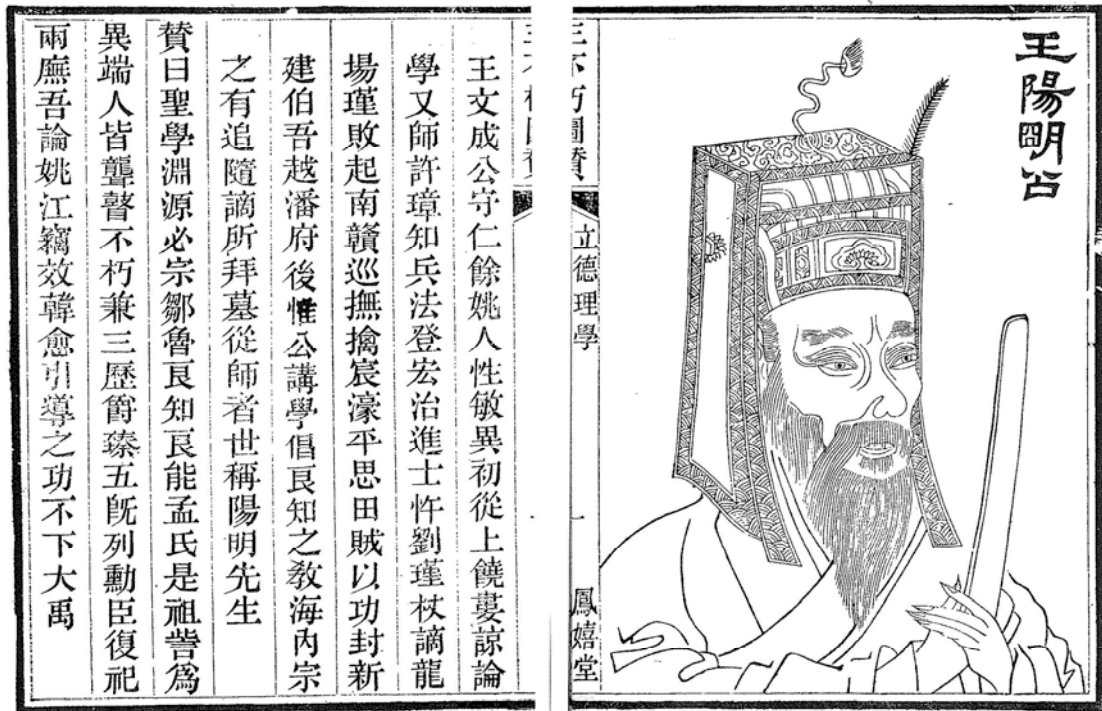 王陽明公
三不朽圖贊
立德理學
一
鳳嬉堂
王文成公守仁餘姚人性敏異初從上饒婁諒論
學又師許璋知兵法登宏治進士忤劉瑾杖謫龍
場瑾敗起南贛巡撫擒宸濠平思田賊以功封新
建伯吾越潘府後惟公講學倡良知之教海內宗
之有追隨謫所拜墓從師者世稱陽明先生
贊曰聖學淵源必宗鄒魯良知良能孟氏是祖訾爲
異端人皆聾瞽不朽兼三歷爵臻五旣列勳臣復祀
兩廡吾論姚江竊效韓愈引導之功不下大禹